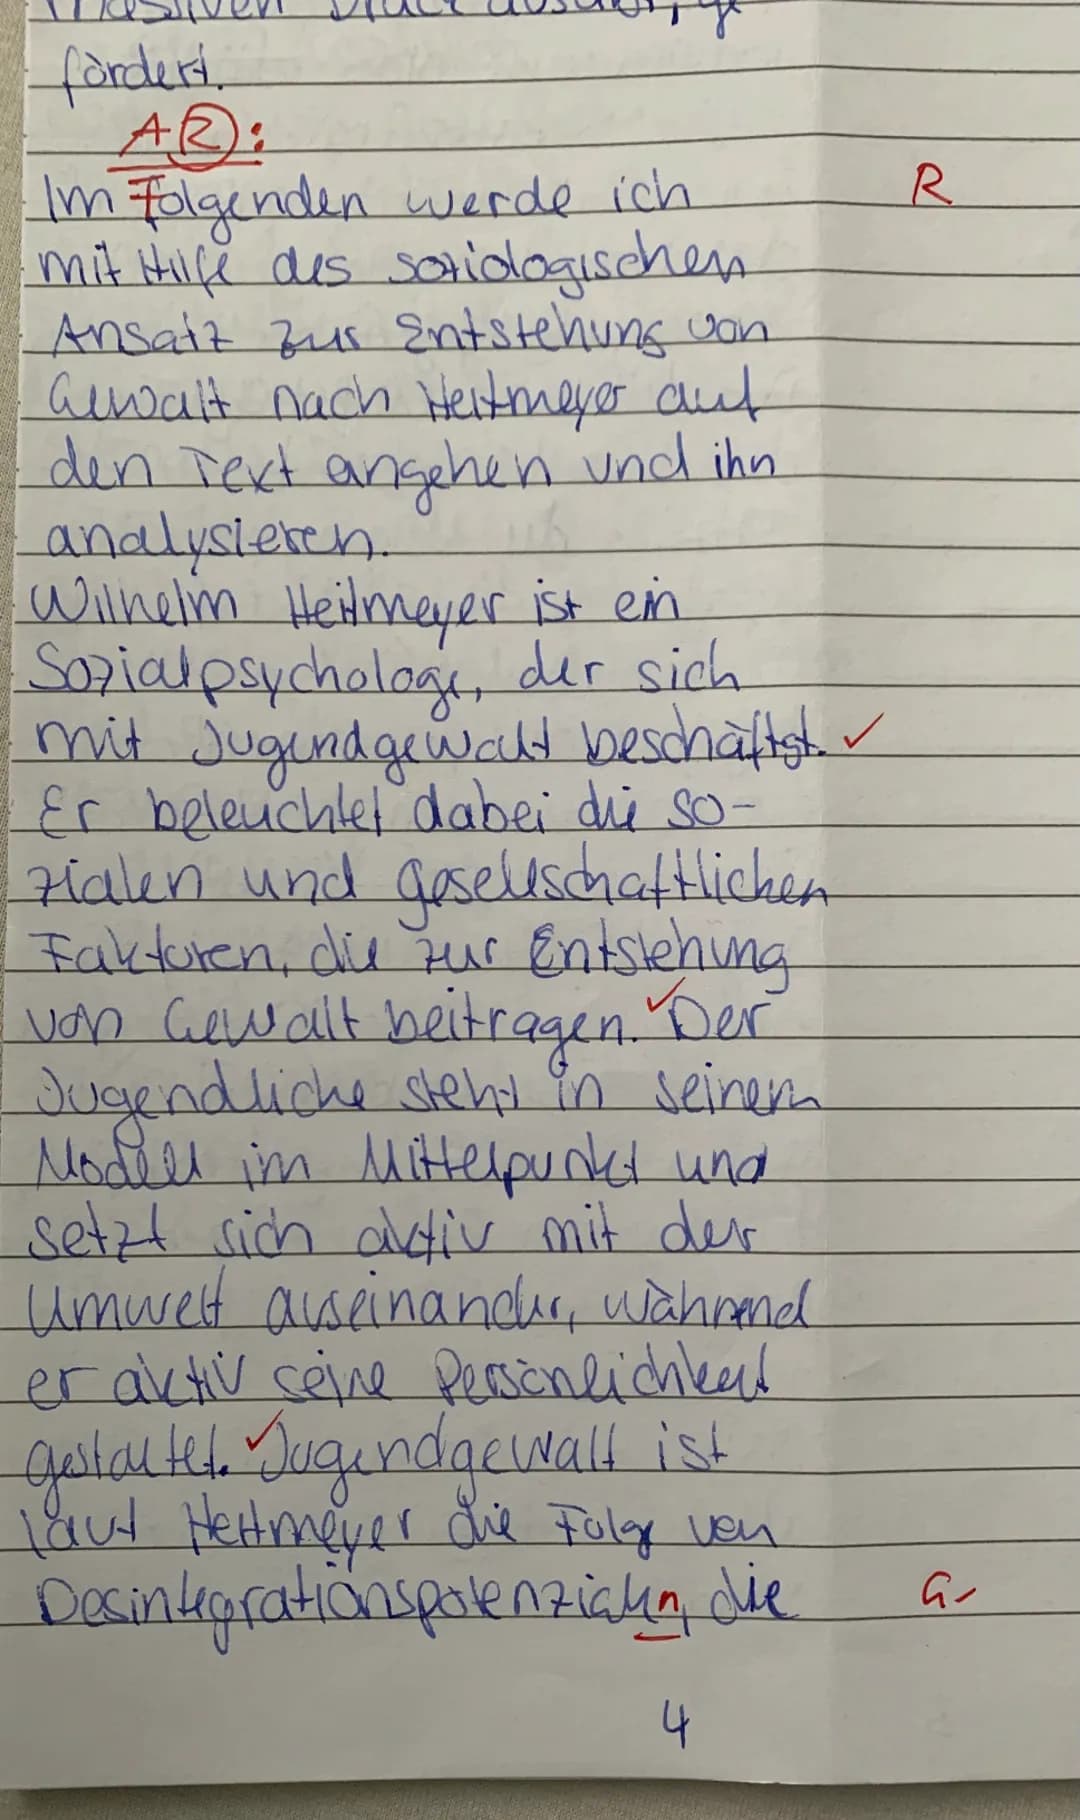 massiven Druck ausübt, ge
fördert.
A2:
Im Folgenden werde ich
R
mit Hilfe des soziologischen
Ansatz zur Entstehung von
Gewalt nach Heitmeyer auf
den Text angehen und ihn
analysieren.
Wilhelm Heitmeyer ist ein
Sozialpsychologe, der sich
mit Jugendgewalt beschäftgt. ✓
Er beleuchtet dabei die so-
zialen und gesellschaftlichen
Faktoren, die zur Entstehung
von Gewalt beitragen. ✓ Der
Jugendliche steht in seinem
Modell im Mittelpunkt und
setzt sich aktiv mit der
Umwelt auseinander, während
er aktiv seine Persönlichkeit
gestaltet. ✓ Jugendgewalt ist
laut Heitmeyer die Folge von
Desintegrationspotenzialen, die
Gr
4